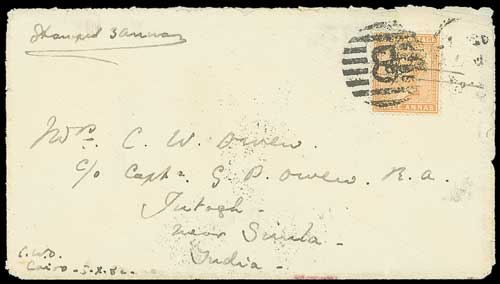 Stamped 3 annas
B
ANNAS
Mrs. C. W. Owen.
c/o Captn. G. P. Owen. R.A.
Jutogh -
near Simla -
India -
C.W.O.
Cairo - 5.X.82